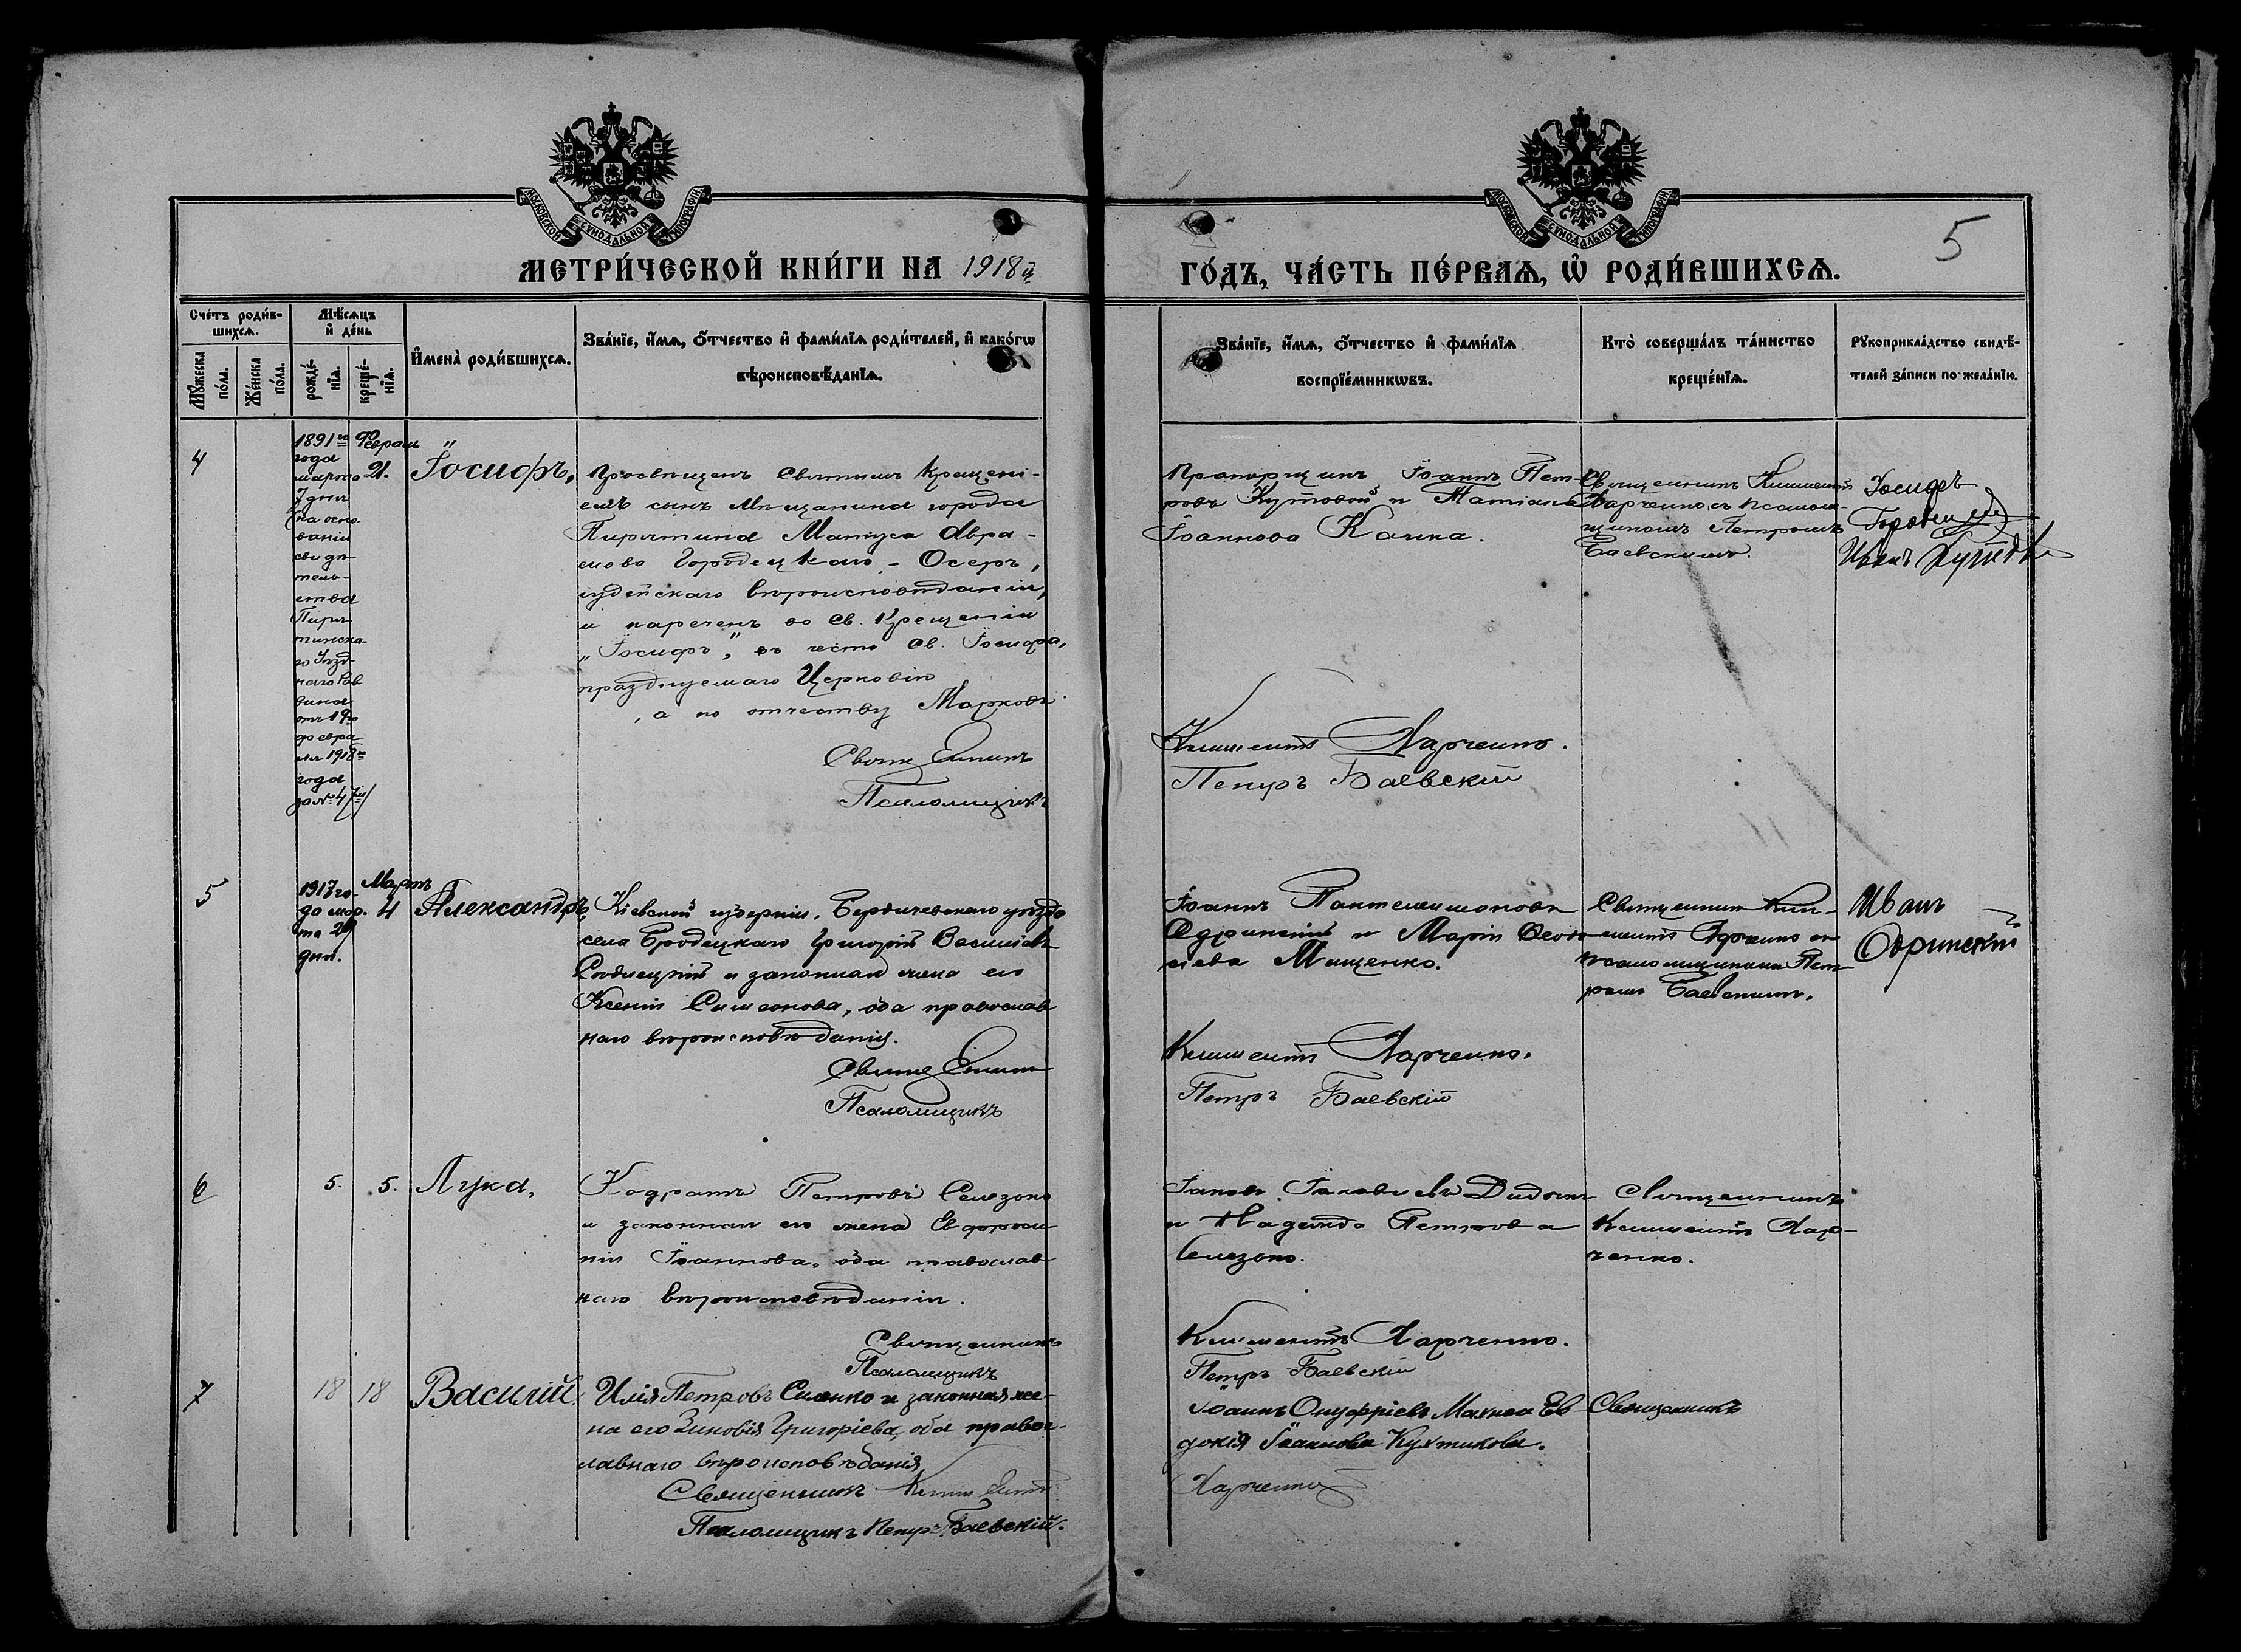 МОСКОВСКОЙ СѴНОДАЛЬНОЙ ТИПОГРАФІИ
МОСКОВСКОЙ СѴНОДАЛЬНОЙ ТИПОГРАФІИ
5
МЕТРИ́ЧЕСКОЙ КНИ́ГИ НА 1918й
ГО́ДЪ, ЧА́СТЬ ПЕ́РВАѦ, Ѡ҆ РОДИ́ВШИХСѦ.
Сче́тъ роди́в-
шихсѧ.
Мꙋ́жеска
по́ла.
Же́нска
по́ла.
Мѣ́сѧцъ
и҆ де́нь
рожде́-
нїѧ.
креще́-
нїѧ.
И҆мена̀ роди́вшихсѧ.
Зва́нїе, и҆́мѧ, ѻ҆́тчество и҆ фами́лїѧ роди́телей, и҆ како́гѡ
вѣроисповѣ́данїѧ.
Зва́нїе, и҆́мѧ, ѻ҆́тчество и҆ фами́лїѧ
воспрїе́мникѡвъ.
Кто̀ соверша́лъ та́инство
креще́нїѧ.
Рꙋкоприкла́дство свидѣ́-
телей за́писи по жела́нїю.
4
1891го
года
марта
7 дня
(на осно-
ваніи
свидѣ
тель-
ства
Пиря
тинска-
го Уѣзд-
наго Рав
вина
отъ 19го
февра
ля 1918го
года
за № 4)
Февраль
21.
Іосифъ,
Просвѣщенъ Святымъ Крещені-
емъ сынъ мѣщанина города
Пирятина Матуса Авра-
мова Городецкаго - Осеръ,
іудейскаго вѣроисповѣданія,
и нареченъ во Св. Крещеніи
„Іосифъ", въ честь Св. Іосифа,
празднуемаго Церковію
, а по отчеству Марковъ
Священникъ
Псаломщикъ
Прапорщикъ Іоаннъ Пет-
ровъ Кутовой и Татіана
Іоаннова Качка.
Климентъ Харченко.
Петръ Баевскій
Священникъ Климентъ
Харченко съ псалом-
щикомъ Петромъ
Баевскимъ.
Іосифъ
Иванъ
5
1917 го-
да мар.
та 29
дня.
Мартъ
4
Александръ,
Кіевской губерніи, Бердичевскаго уѣзда
села Бродецкаго Григорій Васильевъ
и законная жена его
Ксенія Симеонова, оба православ
наго вѣроисповѣданія.
Священникъ
Псаломщикъ
Іоаннъ Пантелеимоновъ
Одринскій и Марія Ѳеодо
сіева Мищенко.
Климентъ Харченко.
Петръ Баевскій
Священникъ Кли-
ментъ Харченко съ
псаломщикомъ Пет
ромъ Баевскимъ.
Иванъ
Одринскій
6
5.
5.
Лука,
Кодратъ Петровъ Селезонъ
и законная его жена Евфроси
нія Іоаннова, оба православ
наго вѣроисповѣданія.
Священникъ
Псаломщикъ
Іаковъ Іаковлевъ
и Надежда Петрова
Селезонъ.
Климентъ Харченко.
Петръ Баевскій
Священникъ
Климентъ Хар-
ченко.
7
18
18
Василій
Илія Петровъ Силенко и законная же-
на его Зиновія Григоріева, оба правос-
лавнаго вѣроисповѣданія
Священникъ Климентъ
Псаломщикъ Петръ Баевскій.
Іоаннъ Онуфріевъ Махно Ев
докія Іоаннова Кухтикова.
Харченко
Священникъ